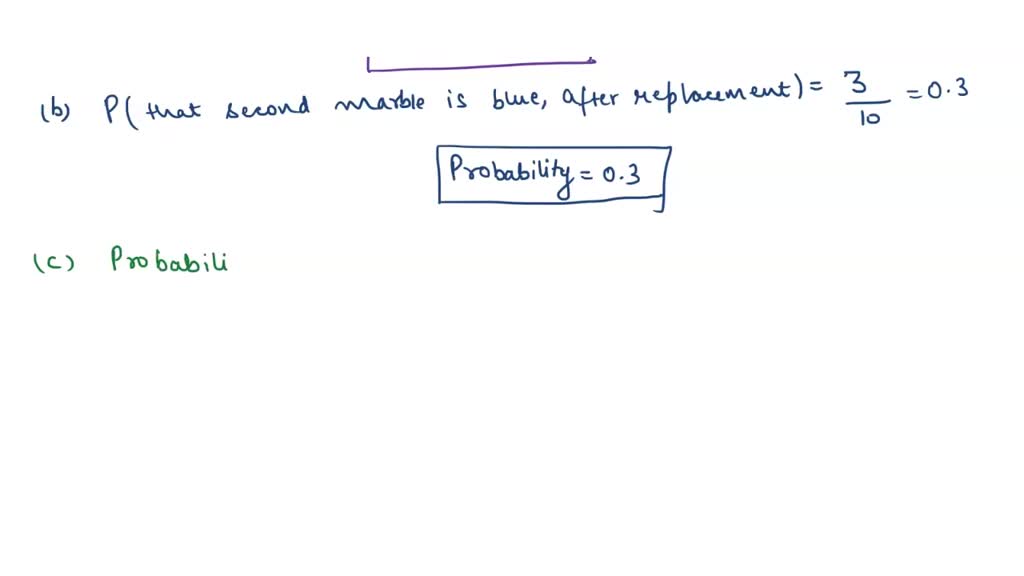 (b) P(that second marble is blue, after replacement) = 3/10 = 0.3
Probability = 0.3
(c) Probabili